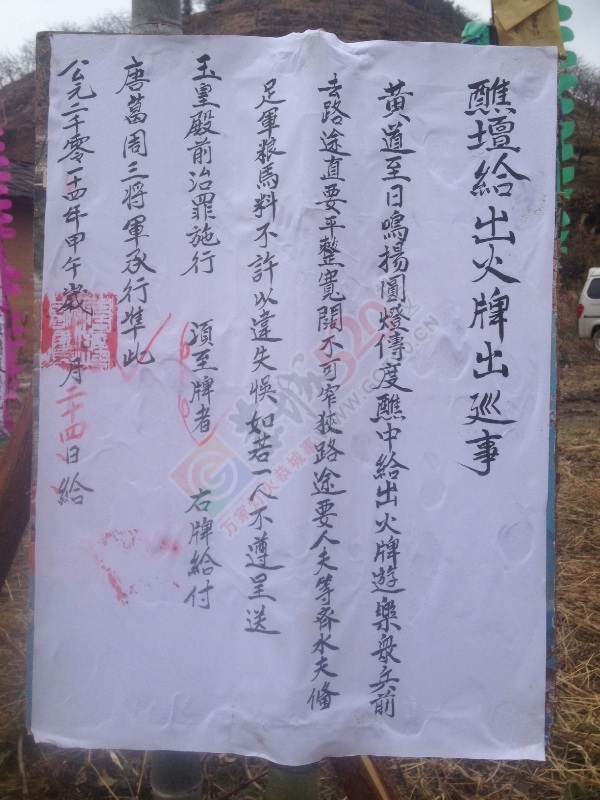 醮壇給出火牌出巡事
黃道至日鳴揚圖燈儔度醮中給出火牌遊樂衆兵前
去路途直要平整寬闊不可窄狹路途要人夫等齊水夫俻
足軍粮馬料不許以違失悞如若一人不遵呈送
玉皇殿前治罪施行 須至牌者 右牌給付
唐葛周三将軍承行準此
公元二千零一十四年甲午歲 月二十四日給
恭城520
WWW.GC520.CN
万家灯火恭城事